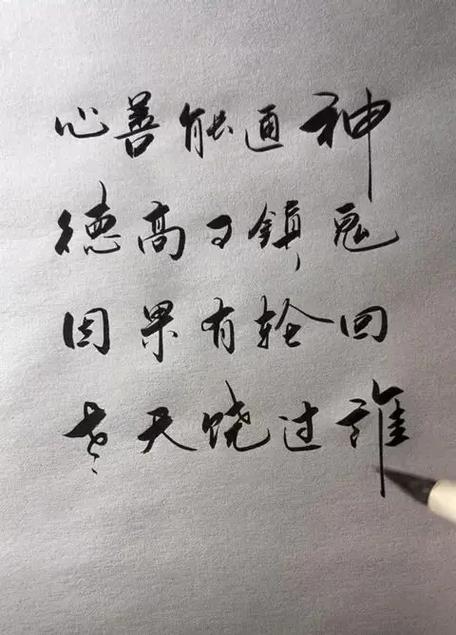 心善能通神
德高可鎮鬼
因果有轮回
苍天饶过誰